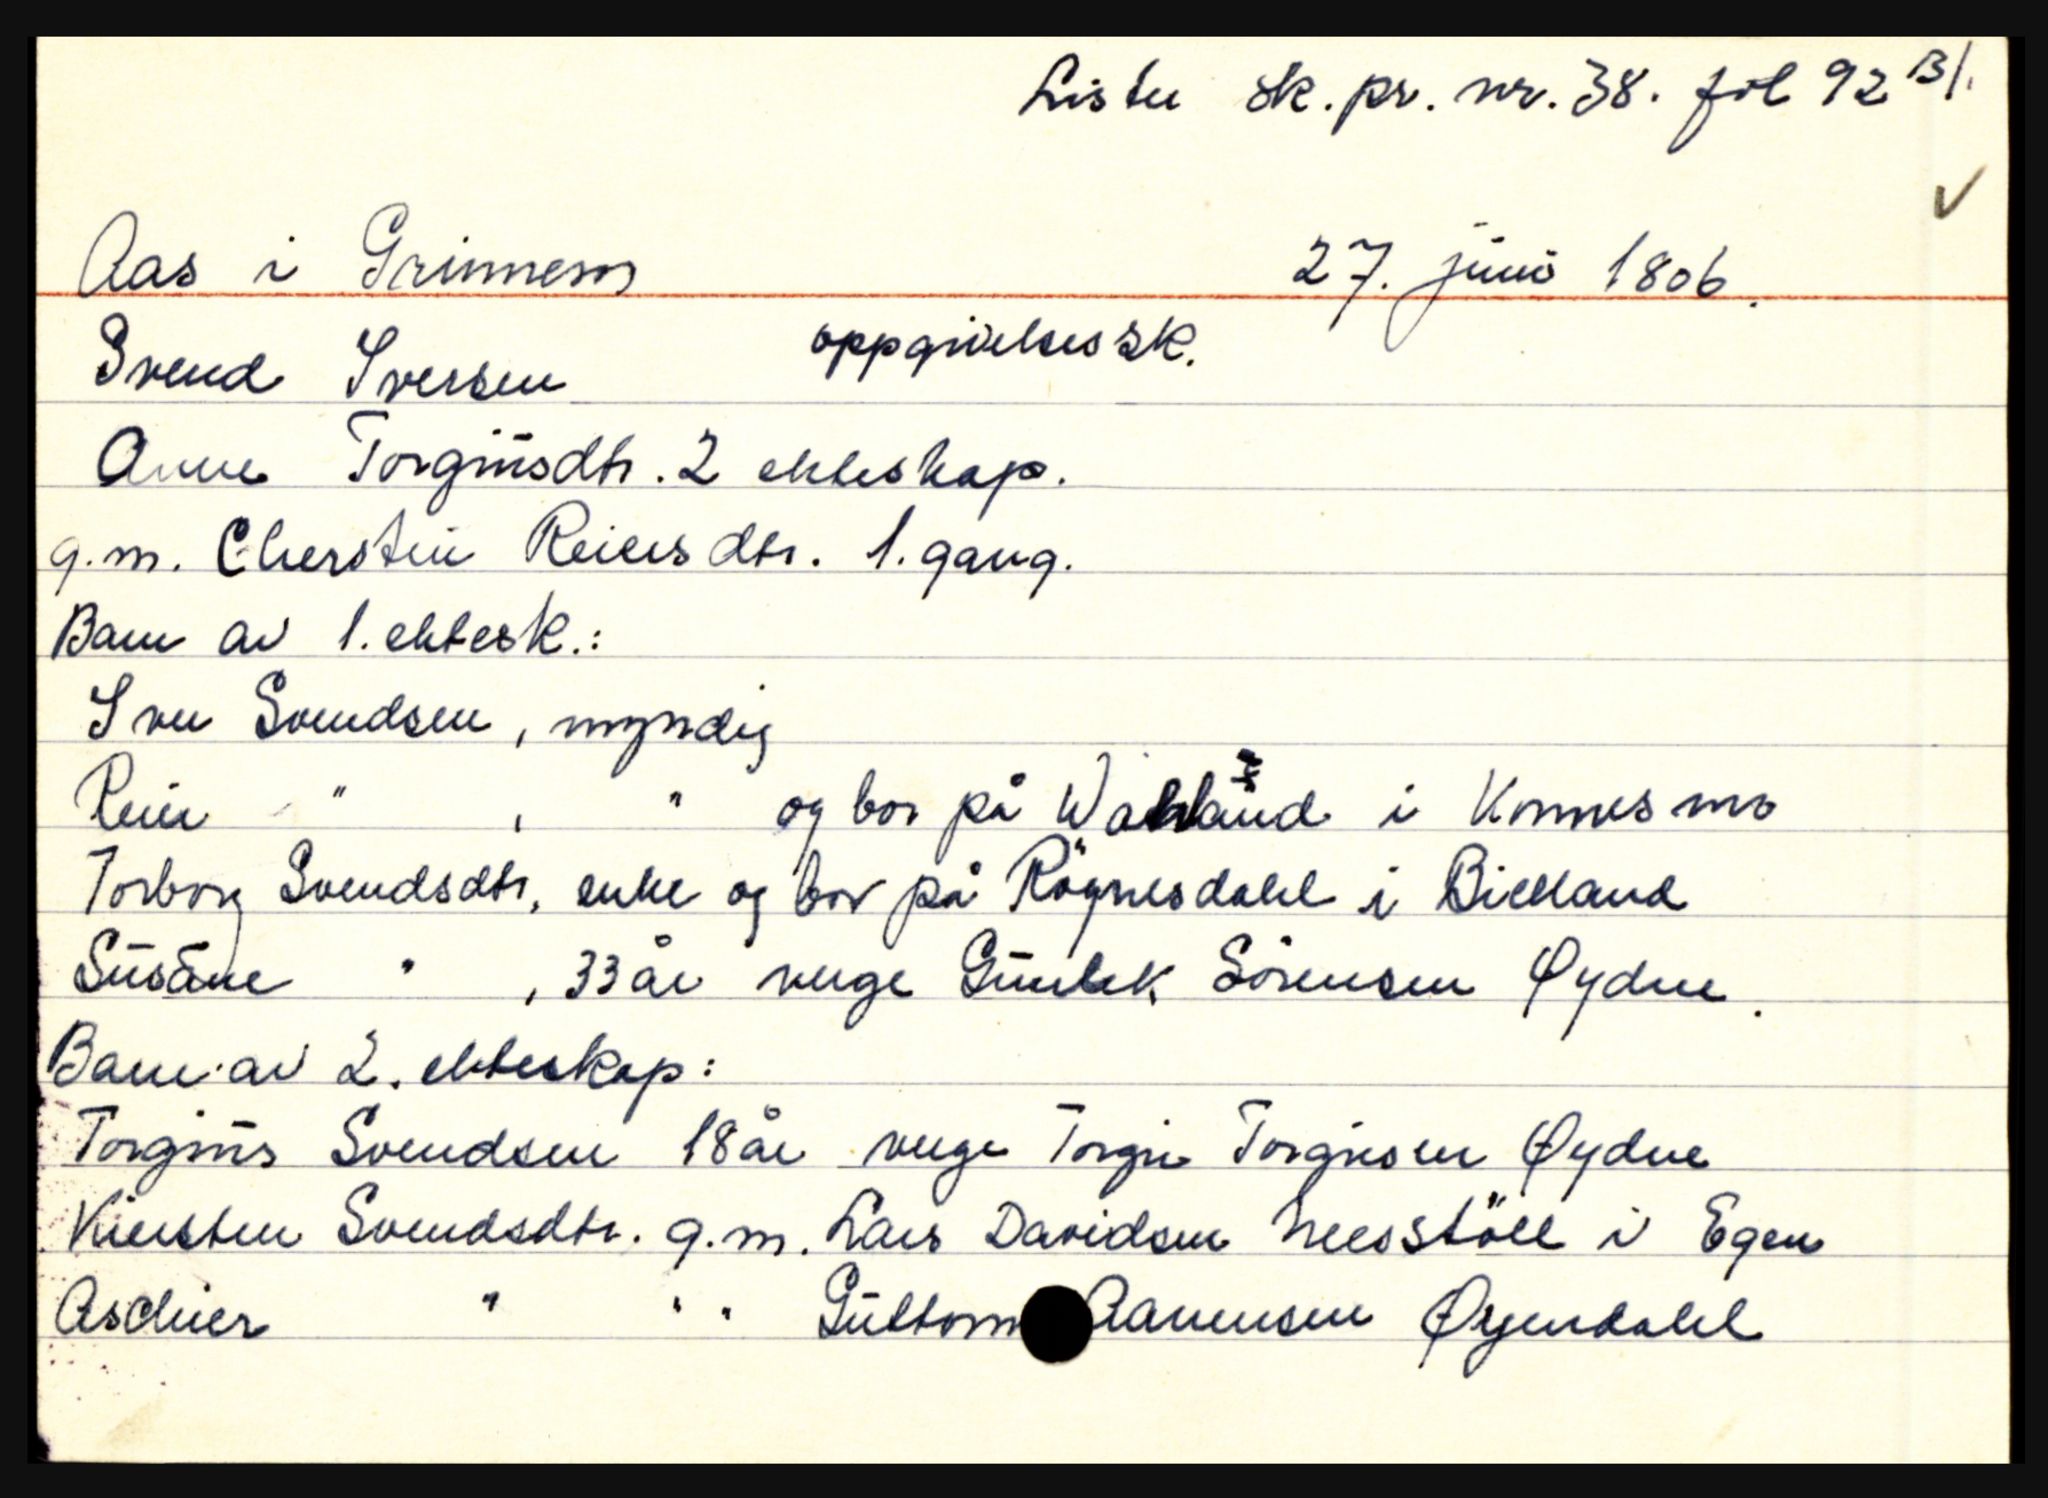 Lister sk. pr. nr. 38. fol 92 B/.
Aas i Grinnem 27. juni 1806.
Svend Iversen oppgivelses sk.
Anne Torgiusdtr. 2 ekteskap.
g.m. Cherstin Reiersdtr. 1. gang.
Barn av 1. ektesk.:
Iver Svendsen, myndig
Reier " , " og bor på Wahland i Konnesmo
Torborg Svendsdtr, enke og bor på Rögnesdahl i Bielland
Susane " , 33 år verge Gunlek Sörensen Øydne.
Barn av 2. ekteskap:
Torgius Svendsen 18 år verge Torgie Torgiesen Øydne
Kiersten Svendsdtr. g.m. Lars Davidsen Neesstöll i Egen
Aschier " " " Guttorm Aanensen Øyendahl